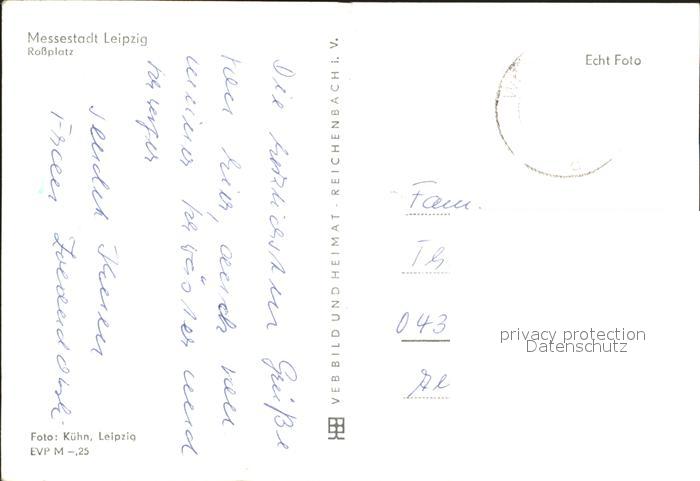 Messestadt Leipzig
Roßplatz
Die herzlichsten Grüße
von hier, auch von
meiner Schwester und
Schwager
sendet Ihnen
Frau
Foto: Kühn, Leipzig
EVP M –,25
VEB BILD UND HEIMAT · REICHENBACH i. V.
Echt Foto
Fam.
Th
043
privacy protection
Datenschutz